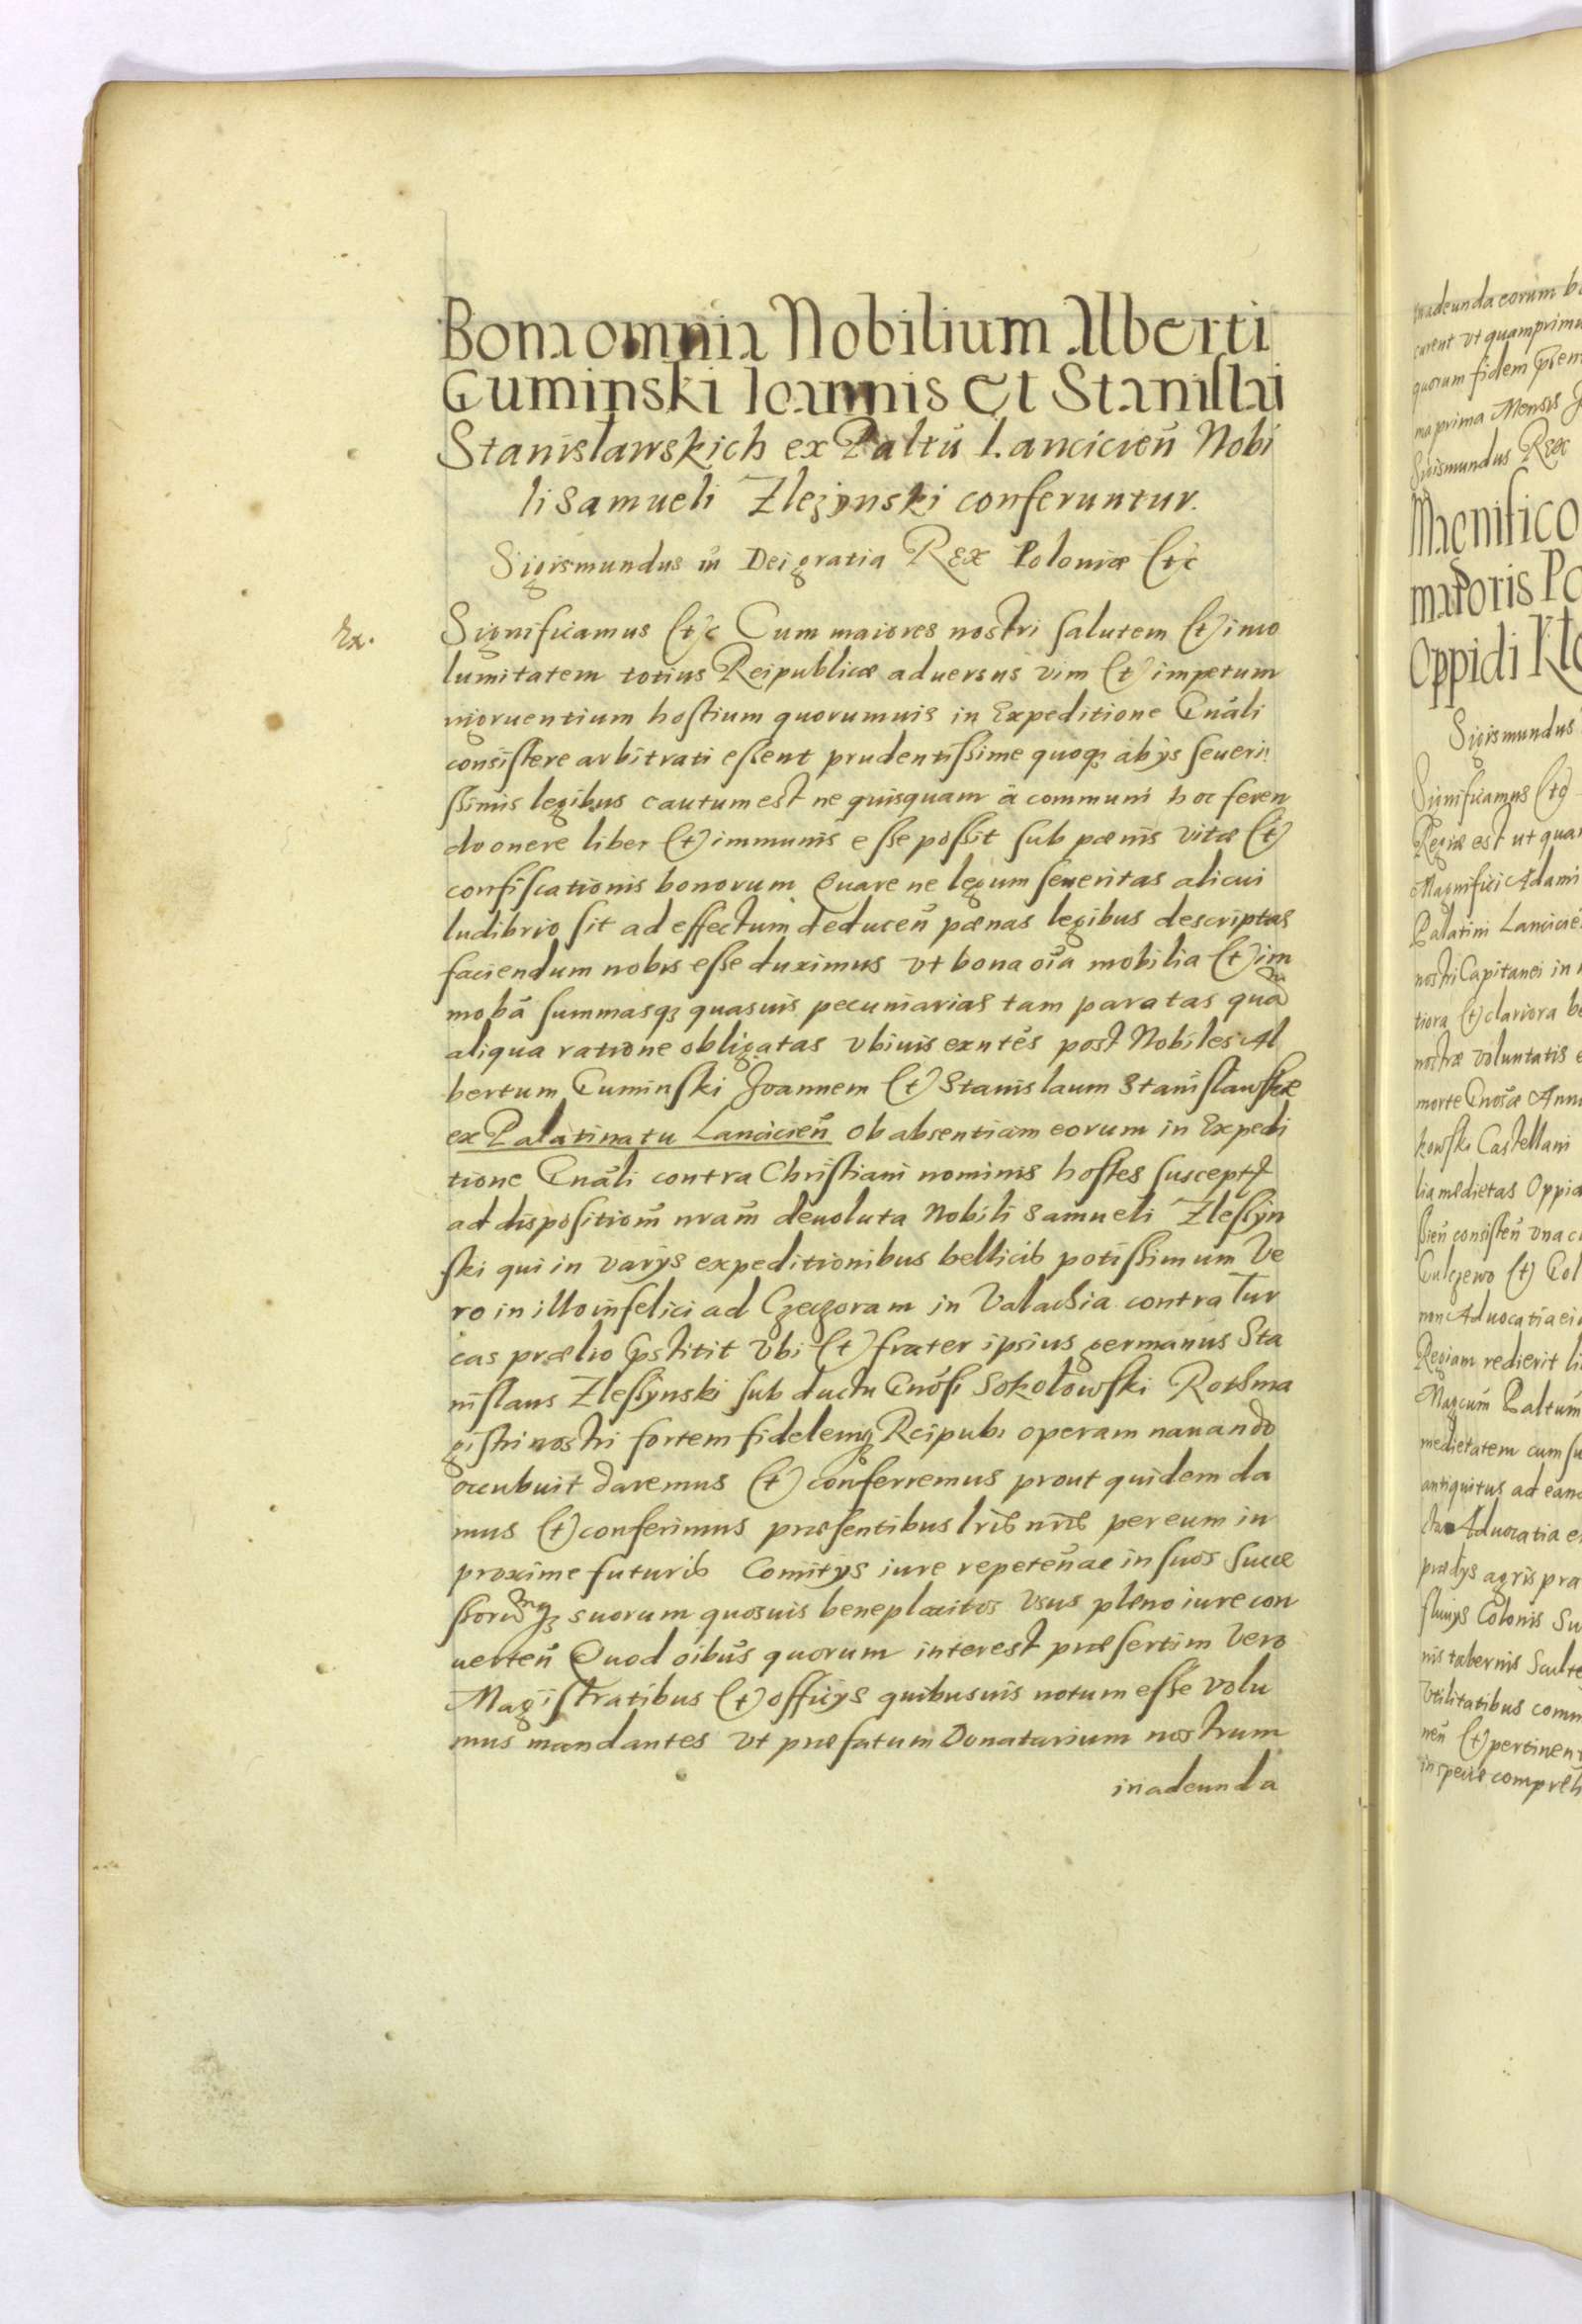 Bona omnia Nobilium Alberti
Guminski Ioannis Et Stanislai
Stanisławskich ex Paltũ Lancicieñ Nobi
li Samueli Zlezynski conferuntur.
Sigismundus iii Dei gratia Rex Poloniæ Etc
Ex.
Significamus Etc Cum maiores nostri salutem et inco
lumitatem totius Reipublicæ aduersus vim et impetum
ingruentium hostium quorumuis in Expeditione Gnãli
consistere arbitrati essent prudentissime quoq; ab ijs seueri
ssimis legibus cautum est ne quisquam à communi hoc feren
do onere liber et immunis esse possit sub pænis vitæ et
confiscationis bonorum Quare ne legum seueritas alicui
ludibrio sit ad effectum deduceñ pænas legibus descriptas
faciendum nobis esse duximus vt bona oĩa mobilia et im
mobã summasq; quasuis pecuniarias tam paratas quam
aliqua ratione obligatas vbiuis exñtes post Nobiles Al
bertum Guminski Joannem et Stanislaum Stanisławskie
ex Palatinatu Lancicieñ ob absentiam eorum in Expedi
tione Gnãli contra Christiani nominis hostes suscepta
ad dispositiom̃ nram̃ deuoluta Nobili Samueli Zlessyn
ski qui in varijs expeditionibus bellicis potissimum ve
ro in illo infelici ad Czeczoram in Valachia contra Tur
cas prælio pstitit vbi et frater ipsius germanus Sta
nislaus Zlessynski sub ductu Gnosi Sokołowski Rothma
gistri nostri fortem fidelemq; Reipub: operam nauando
occubuit daremus et conferremus prout quidem da
mus et conferimus præsentibus lris nris per eum in
proxime futuris Comitijs iure repeteñ ac in suos succe
ssorumq; suorum quosuis beneplacitos vsus pleno iure con
uerteñ Quod oibus quorum interest præsertim vero
Magistratibus et officijs quibusuis notum esse volu
mus mandantes vt præfatum Donatarium nostrum
in adeunda
in adeunda eorum
curent vt quamprimu
quorum fidem
na prima Mensis
Sigismundus Rex
Magnifico
maioris Po
Oppidi Kło
Sigismundus
Significamus Etc
Regiæ est ut qua
Magnifici Adami
Palatini Lancicie
nostri Capitanei in
tiora et clariora
nostræ voluntatis
morte Gnosæ Ann
kowski Castellani
lia medietas Oppi
sieñ consisteñ vna
Gulczewo et Gol
non Aduocatia
Regiam redierit
Magcum Paltum
medietatem cum
antiquitus ad
Aduocatia
prædijs agris pra
fluuijs Colonis
nis tabernis Sculte
vtilitatibus comm
neñ et pertinen
in specie compreh